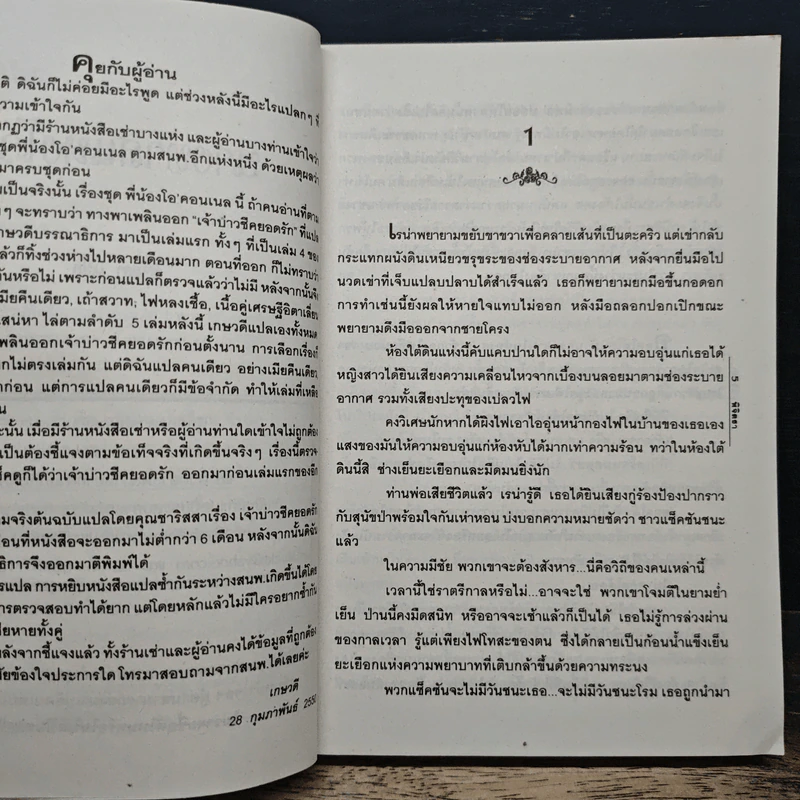 คุยกับผู้อ่าน
ติ ดิฉันก็ไม่ค่อยมีอะไรพูด แต่ช่วงหลังนี้มีอะไรแปลกๆ ที่
วามเข้าใจกัน
กฏว่ามีร้านหนังสือเช่าบางแห่ง และผู้อ่านบางท่านเข้าใจว่า
ชุดพี่น้องโอ'คอนเนล ตามสนพ.อีกแห่งหนึ่ง ด้วยเหตุผลว่า
มาครบชุดก่อน
เป็นจริงนั้น เรื่องชุด พี่น้องโอ'คอนเนล นี้ ถ้าคนอ่านที่ตาม
งๆ จะทราบว่า ทางพาเพลินออก "เจ้าบ่าวชีคยอดรัก" ที่แปล
กษวดีบรรณาธิการ มาเป็นเล่มแรก ทั้งๆ ที่เป็นเล่ม 4 ของ
ล้วก็ทิ้งช่วงห่างไปหลายเดือนมาก ตอนที่ออก ก็ไม่ทราบว่า
กันหรือไม่ เพราะก่อนแปลก็ตรวจแล้วว่าไม่มี หลังจากนั้นจึง
มียคืนเดียว, เถ้าสวาท; ไฟหลงเชื้อ, เนื้อคู่เศรษฐีอิตาเลียน
สน่หา ไล่ตามลำดับ 5 เล่มหลังนี้ เกษวดีแปลเองทั้งหมด
เพลินออกเจ้าบ่าวชีคยอดรักก่อนตั้งนาน การเลือกเรื่องก็
กไม่ตรงเล่มกัน แต่ดิฉันแปลคนเดียว อย่างเมียคืนเดียว
าก่อน แต่การแปลคนเดียวก็มีข้อจำกัด ทำให้เล่มที่เหลือ
น
ะนั้น เมื่อมีร้านหนังสือเช่าหรือผู้อ่านท่านใดเข้าใจไม่ถูกต้อง
เป็นต้องชี้แจงตามข้อเท็จจริงที่เกิดขึ้นจริงๆ เรื่องนี้ตรวจ
ช็คดูก็ได้ว่าเจ้าบ่าวชีคยอดรัก ออกมาก่อนเล่มแรกของอีก
มจริงต้นฉบับแปลโดยคุณชาริสสาเรื่อง เจ้าบ่าวชีคยอดรัก
อนที่หนังสือจะออกมาไม่ต่ำกว่า 6 เดือน หลังจากนั้นดิฉัน
ธิการจึงออกมาตีพิมพ์ได้
ารแปล การหยิบหนังสือแปลซ้ำกันระหว่างสนพ.เกิดขึ้นได้โดย
ารตรวจสอบทำได้ยาก แต่โดยหลักแล้วไม่มีใครอยากซ้ำกัน
ยหายทั้งคู่
หลังจากชี้แจงแล้ว ทั้งร้านเช่าและผู้อ่านคงได้ข้อมูลที่ถูกต้อง
ัยข้องใจประการใด โทรมาสอบถามจากสนพ.ได้เลยค่ะ
เกษวดี
28 กุมภาพันธ์
1
เรน่าพยายามขยับขาขวาเพื่อคลายเส้นที่เป็นตะคริว แต่เข่ากลับ
กระแทกผนังดินเหนียวขรุขระของช่องระบายอากาศ หลังจากยื่นมือไป
นวดเข่าที่เจ็บแปลบปลาบได้สำเร็จแล้ว เธอก็พยายามยกมือขึ้นกอดอก
การทำเช่นนี้ยังผลให้หายใจแทบไม่ออก หลังมือถลอกปอกเปิกขณะ
พยายามดึงมือออกจากชายโครง
ห้องใต้ดินแห่งนี้คับแคบปานใดก็ไม่อาจให้ความอบอุ่นแก่เธอได้
หญิงสาวได้ยินเสียงความเคลื่อนไหวจากเบื้องบนลอยมาตามช่องระบาย
อากาศ รวมทั้งเสียงปะทุของเปลวไฟ
คงวิเศษนักหากได้ผิงไฟเอาไออุ่นหน้ากองไฟในบ้านของเธอเอง
แสงของมันให้ความอบอุ่นแก่ห้องหับได้มากเท่าความร้อน ทว่าในห้องใต้
ดินนี้สิ ช่างเย็นยะเยือกและมืดมนยิ่งนัก
ท่านพ่อเสียชีวิตแล้ว เรน่ารู้ดี เธอได้ยินเสียงกู่ร้องป้องปากราว
กับสุนัขป่าพร้อมใจกันเห่าหอน บ่งบอกความหมายชัดว่า ชาวแซ็คซันชนะ
แล้ว
ในความมีชัย พวกเขาจะต้องสังหาร...นี่คือวิถีของคนเหล่านี้
เวลานี้ใช่ราตรีกาลหรือไม่...อาจจะใช่ พวกเขาโจมตีในยามย่ำ
เย็น ป่านนี้คงมืดสนิท หรืออาจจะเช้าแล้วก็เป็นได้ เธอไม่รู้การล่วงผ่าน
ของกาลเวลา รู้แต่เพียงไฟโทสะของตน ซึ่งได้กลายเป็นก้อนน้ำแข็งเย็น
ยะเยือกแห่งความพยาบาทที่เติบกล้าขึ้นด้วยความทระนง
พวกแซ็คซันจะไม่มีวันชนะเธอ...จะไม่มีวันชนะโรม เธอถูกนำมา
5